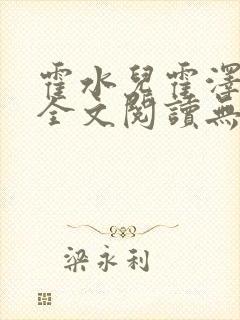 霍水兒霍澤
全文閱讀無
梁永利